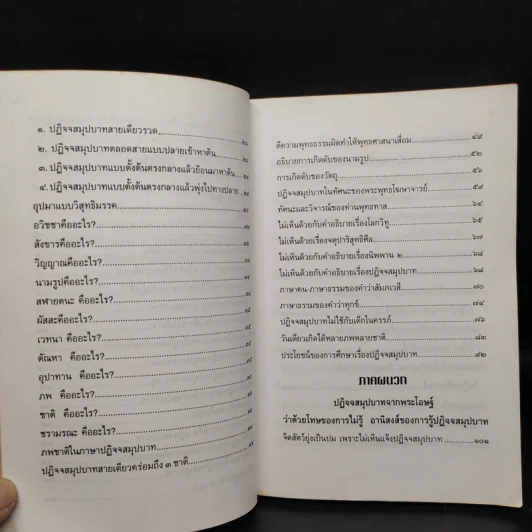 ๑. ปฏิจจสมุปบาทสายเดียวรวด
๒. ปฏิจจสมุปบาทตลอดสายแบบปลายเข้าหาต้น
๓. ปฏิจจสมุปบาทแบบตั้งต้นตรงกลางแล้วย้อนมาหาต้น
๔. ปฏิจจสมุปบาทแบบตั้งต้นตรงกลางแล้วพุ่งไปทางปลาย
อุปมาแบบวิสุทธิมรรค
อวิชชาคืออะไร?
สังขารคืออะไร?
วิญญาณคืออะไร?
นามรูปคืออะไร?
สฬายตนะ คืออะไร?
ผัสสะคืออะไร?
เวทนา คืออะไร?
ตัณหา คืออะไร?
อุปาทาน คืออะไร?
ภพ คืออะไร?
ชาติ คืออะไร?
ชรามรณะ คืออะไร?
ภพชาติในภาษาปฏิจจสมุปบาท
ปฏิจจสมุปบาทสายเดียวคร่อมถึง ๓ ชาติ
ตีความพุทธธรรมผิดทำให้พุทธศาสนาเสื่อม ๔๙
อธิบายการเกิดดับของนามรูป ๕๒
การเกิดดับของวัตถุ ๕๖
ปฏิจจสมุปบาทในทัศนะของพระพุทธโฆษาจารย์ ๕๗
ทัศนะและวิจารณ์ของท่านพุทธทาส ๖๔
ไม่เห็นด้วยกับคำอธิบายเรื่องโลกวิทู ๖๕
ไม่เห็นด้วยเรื่องจตุปาริสุทธิศีล ๖๗
ไม่เห็นด้วยกับคำอธิบายเรื่องนิพพาน ๒ ๖๘
ไม่เห็นด้วยกับคำอธิบายเรื่องปฏิจจสมุปบาท ๖๘
ภาษาคน-ภาษาธรรมของคำว่าสัมภเวสี ๗๐
ภาษาธรรมของคำว่าทุกข์ ๗๔
ปฏิจจสมุปบาทไม่ใช้กับเด็กในครรภ์ ๗๖
วันเดียวเกิดได้หลายภพหลายชาติ ๘๓
ประโยชน์ของการศึกษาเรื่องปฏิจจสมุปบาท ๙๒
ภาคผนวก
ปฏิจจสมุปบาทจากพระโอษฐ์
ว่าด้วยโทษของการไม่รู้ อานิสงส์ของการรู้ปฏิจจสมุปบาท
จิตสัตว์ยุ่งเป็นปม เพราะไม่เห็นแจ้งปฏิจจสมุปบาท ๑๐๑